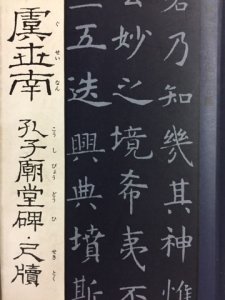 若乃知幾其神惟
妙之境希夷不
五迭興典墳斯
ぐせいなん
虞世南
こうしびょうどうひ せきとく
孔子廟堂碑・尺牘